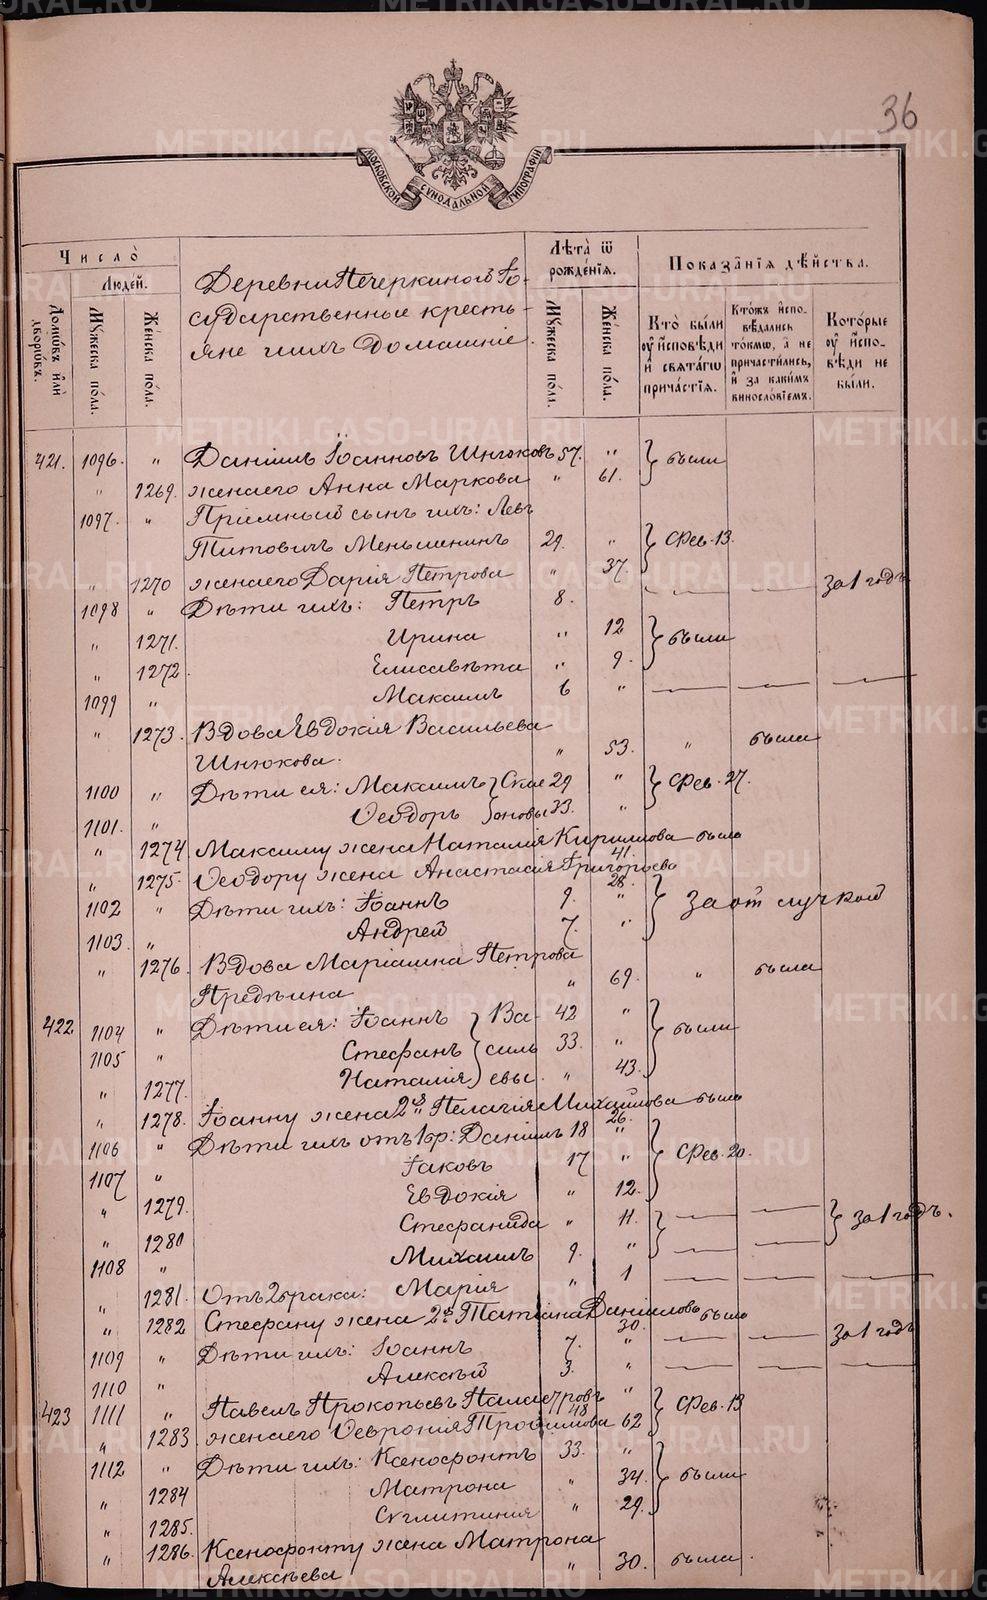 36
МОСКОВСКОЙ СУНОДАЛЬНОЙ ТИПОГРАФІИ
Число̀
Людей.
Домѡвъ и҆лѝ дворѡвъ.
Мꙋжеска по́ла.
Же́нска по́ла.
Деревни Печеркиной Го-
сударственные кресть-
яне и ихъ домашніе.
Лѣта̀ ѿ рожде́нїѧ.
Мꙋжеска по́ла.
Же́нска по́ла.
Показа̑нїѧ дѣ́йства.
Кто̀ были̑ ᲂу҆ и҆сповѣди и҆ свѧта́гѡ прича́стїѧ.
Кто́жъ и҆спо-вѣдались то́кмѡ, а҆ не причасти́лись, и҆ за каки́мъ виносло́вїемъ.
Кото́рые ᲂу҆ и҆спо-вѣди не бы́ли.
421. 1096. " Даніилъ Іоанновъ Шнюковъ 57. " были
" 1269. жена его Анна Маркова " 61.
1097. " Пріемный сынъ ихъ: Левъ
Титовичъ Меньшенинъ 29. " Фев. 13.
" 1270 жена его Дарія Петрова " 37.
1098 " Дѣти ихъ: Петръ 8. за 1 годъ
" 1271. Ирина " 12 были
" 1272. Елисавѣта " 9.
1099 " Максимъ 6 "
" 1273. Вдова Евдокія Васильева
Шнюкова. " 53. " была
1100 " Дѣти ея: Максимъ Симе 29 " Фев. 27.
1101. " Ѳеодоръ оновы 33. "
" 1274. Максиму жена Наталія Кириллова была
41.
" 1275. Ѳеодору жена Анастасія Григорьева
28.
1102 " Дѣти ихъ: Іоаннъ 9. " За отлучкой
1103. " Андрей 7. "
" 1276. Вдова Маріамна Петрова
Предѣина " 69. " была
422 1104 " Дѣти ея: Іоаннъ Ва- 42 " были
1105 " Стефанъ силь 33. "
" 1277. Наталія евы. " 43.
" 1278. Іоанну жена 2я Пелагія Михайлова была
26.
1106 " Дѣти ихъ отъ 1 бр: Даніилъ 18 " Фев. 20.
1107 " Іаковъ 17 "
" 1279. Евдокія " 12.
" 1280 Стефанида " 11. за 1 годъ.
1108 " Михаилъ 9. "
" 1281. Отъ 2 брака: Марія " 1
" 1282 Стефану жена 2я Татіана Даніилова была
30.
1109 " Дѣти ихъ: Іоаннъ 7. " за 1 годъ
1110 " Алексѣй 3. "
423 1111 " Павелъ Прокопьевъ " Фев. 13
" 1283. жена его Ѳевронія Трофимова 62
1112 " Дѣти ихъ: Ксенофонтъ 33. " были
" 1284 Матрона " 34.
" 1285. Сѵглитикия " 29.
" 1286. Ксенофонту жена Матрона
Алексѣева " 30. была.
METRIKI.GASO-URAL.RU